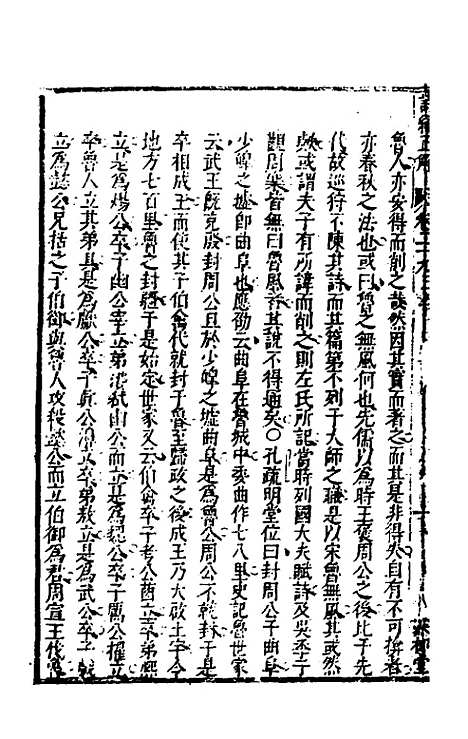 魯人亦安得而削之哉然因其實而著之而其是非得失自有不可揜者
亦春秋之法也或曰魯之無風何也先儒以為時王褒周公之後比于先
代故巡狩不陳其詩而其篇第不列于大師之職是以宋魯無風其或然
歟或謂夫子有所諱而削之則左氏所記當時列國大夫賦詩及吳季子
觀周樂皆無曰魯風者其說不得通矣○孔疏明堂位曰封周公于曲阜
少皥之墟即曲阜也應劭云曲阜在魯城中委曲作七八里史記魯世家
云武王既克殷封周公旦於少皥之墟曲阜是為魯公周公不就封于是
卒相成王而使其子伯禽代就封于魯至歸政之後成王乃大啟土宇令
地方七百里魯之封疆于是始定世家又云伯禽卒子考公酉立卒弟熙
立是為煬公卒子幽公宰立弟㵒弒幽公而立是為魏公卒子厲公擢立
卒魯人立其弟具是為獻公卒子真公濞立卒弟敖立是為武公卒子戲
立為懿公兄括之子伯御與魯人攻殺懿公而立伯御為君周宣王伐魯